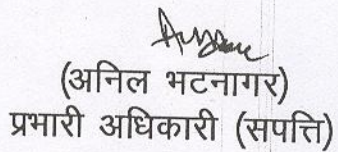 (अनिल भटनागर)
प्रभारी अधिकारी (सपत्ति)